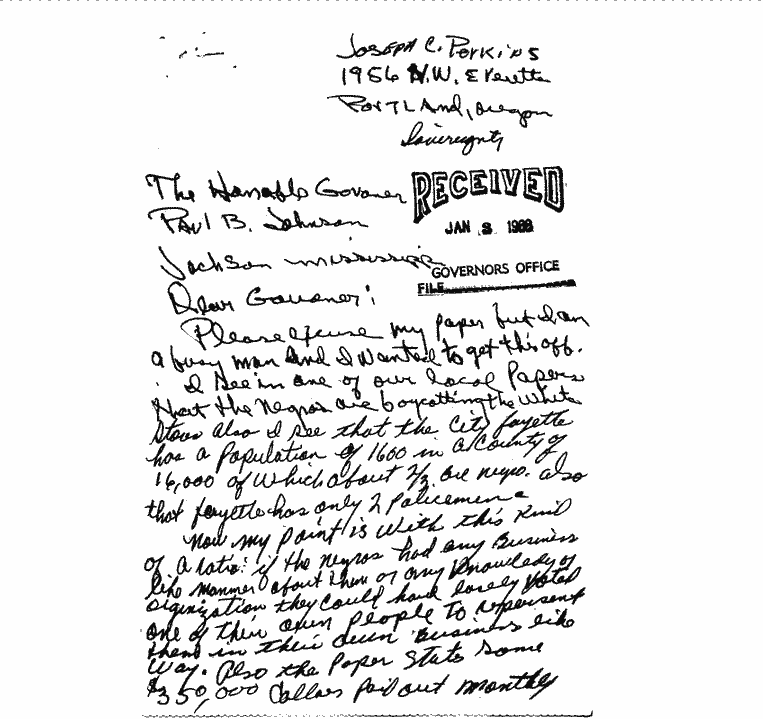 Joseph C. Perkins
1956 N.W. Everette
Portland, Oregon
Sovereignty
The Honrable Govoner
Paul B. Johnson
RECEIVED
JAN 3
Jackson Mississippi
GOVERNORS OFFICE
FILE
Dear Govoner:
Please excuse my paper but I am
a busy man and I wanted to get this off.
I see in one of our local Papers
that the Negros are boycotting the White
Stores also I see that the City fayette
has a Population of 1600 in a County of
16,000 of which about 2/3 are negro. also
that fayette has only 2 Policemen
Now my point is with this Kind
of a ratio: if the Negros had any Business
like manner about them or any Knowledge of
orginization they could have easely voted
one of their own People to repersent
them in their own Business like
way. Also the Paper Stats some
$350,000 dollars paid out monthly